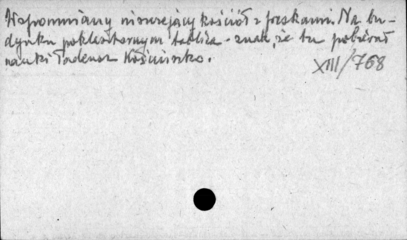 Wspomniany niszczejący kościół z freskami. Na bu-
dynku poklasztornym tablica - znak, że tu pobierał
nauki Tadeusz Kościuszko.
XIII/768